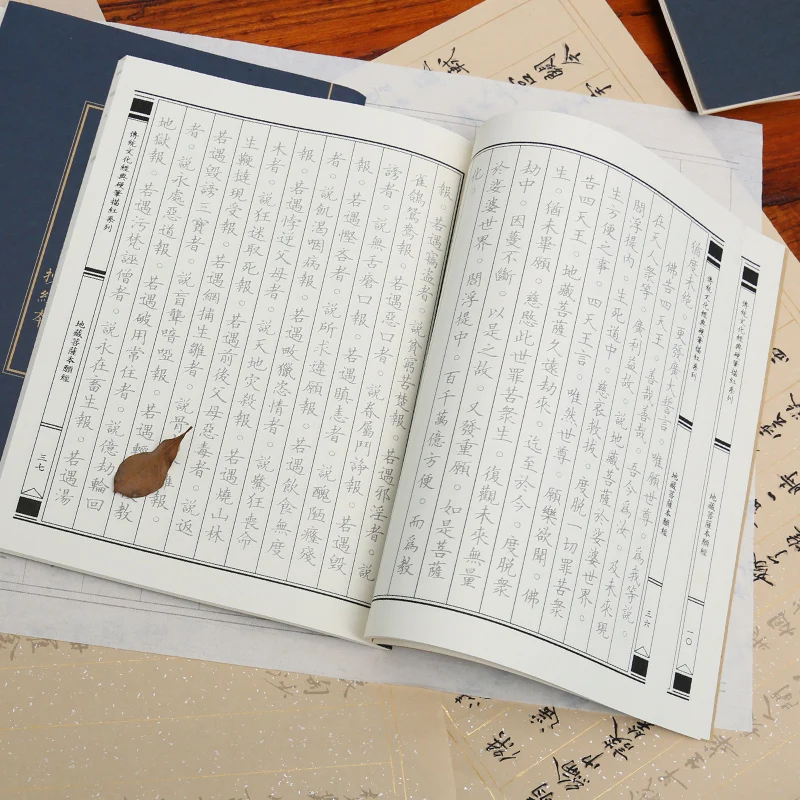 傳統文化經典硬筆描紅系列
地藏菩薩本願經
一〇
傳統文化經典硬筆描紅系列
地藏菩薩本願經
三六
度未絕。更發廣大誓言。唯願世尊。為我等說。
佛告四天王。善哉善哉。吾今為汝。及未來現
在天人眾等。廣利益故。說地藏菩薩於娑婆世界。
閻浮提內。生死道中。慈哀救拔。度脫一切罪苦眾
生方便之事。四天王言。唯然世尊。願樂欲聞。佛
告四天王。地藏菩薩久遠劫來。迄至於今。度脫眾
生。猶未畢願。慈愍此世罪苦眾生。復觀未來無量
劫中。因蔓不斷。以是之故。又發重願。如是菩薩
於娑婆世界。閻浮提中。百千萬億方便。而為教
化。
報。若遇竊盜者。說貧窮苦楚報。若遇邪淫者。說
雀鴿鴛鴦報。若遇惡口者。說眷屬鬥諍報。若遇毀
謗者。說無舌瘡口報。若遇瞋恚者。說醜陋癃殘
報。若遇慳吝者。說所求違願報。若遇飲食無度
者。說飢渴咽病報。若遇畋獵恣情者。說驚狂喪命
報。若遇悖逆父母者。說天地災殺報。若遇燒山林
木者。說狂迷取死報。若遇前後父母惡毒者。說返
生鞭撻現受報。若遇網捕生雛者。說骨離報。
若遇毀謗三寶者。說盲聾喑啞報。若遇輕教
者。說永處惡道報。若遇破用常住者。說億劫輪回
地獄報。若遇污梵誣僧者。說永在畜生報。若遇湯
傳統文化經典硬筆描紅系列
地藏菩薩本願經
三七
描紅本